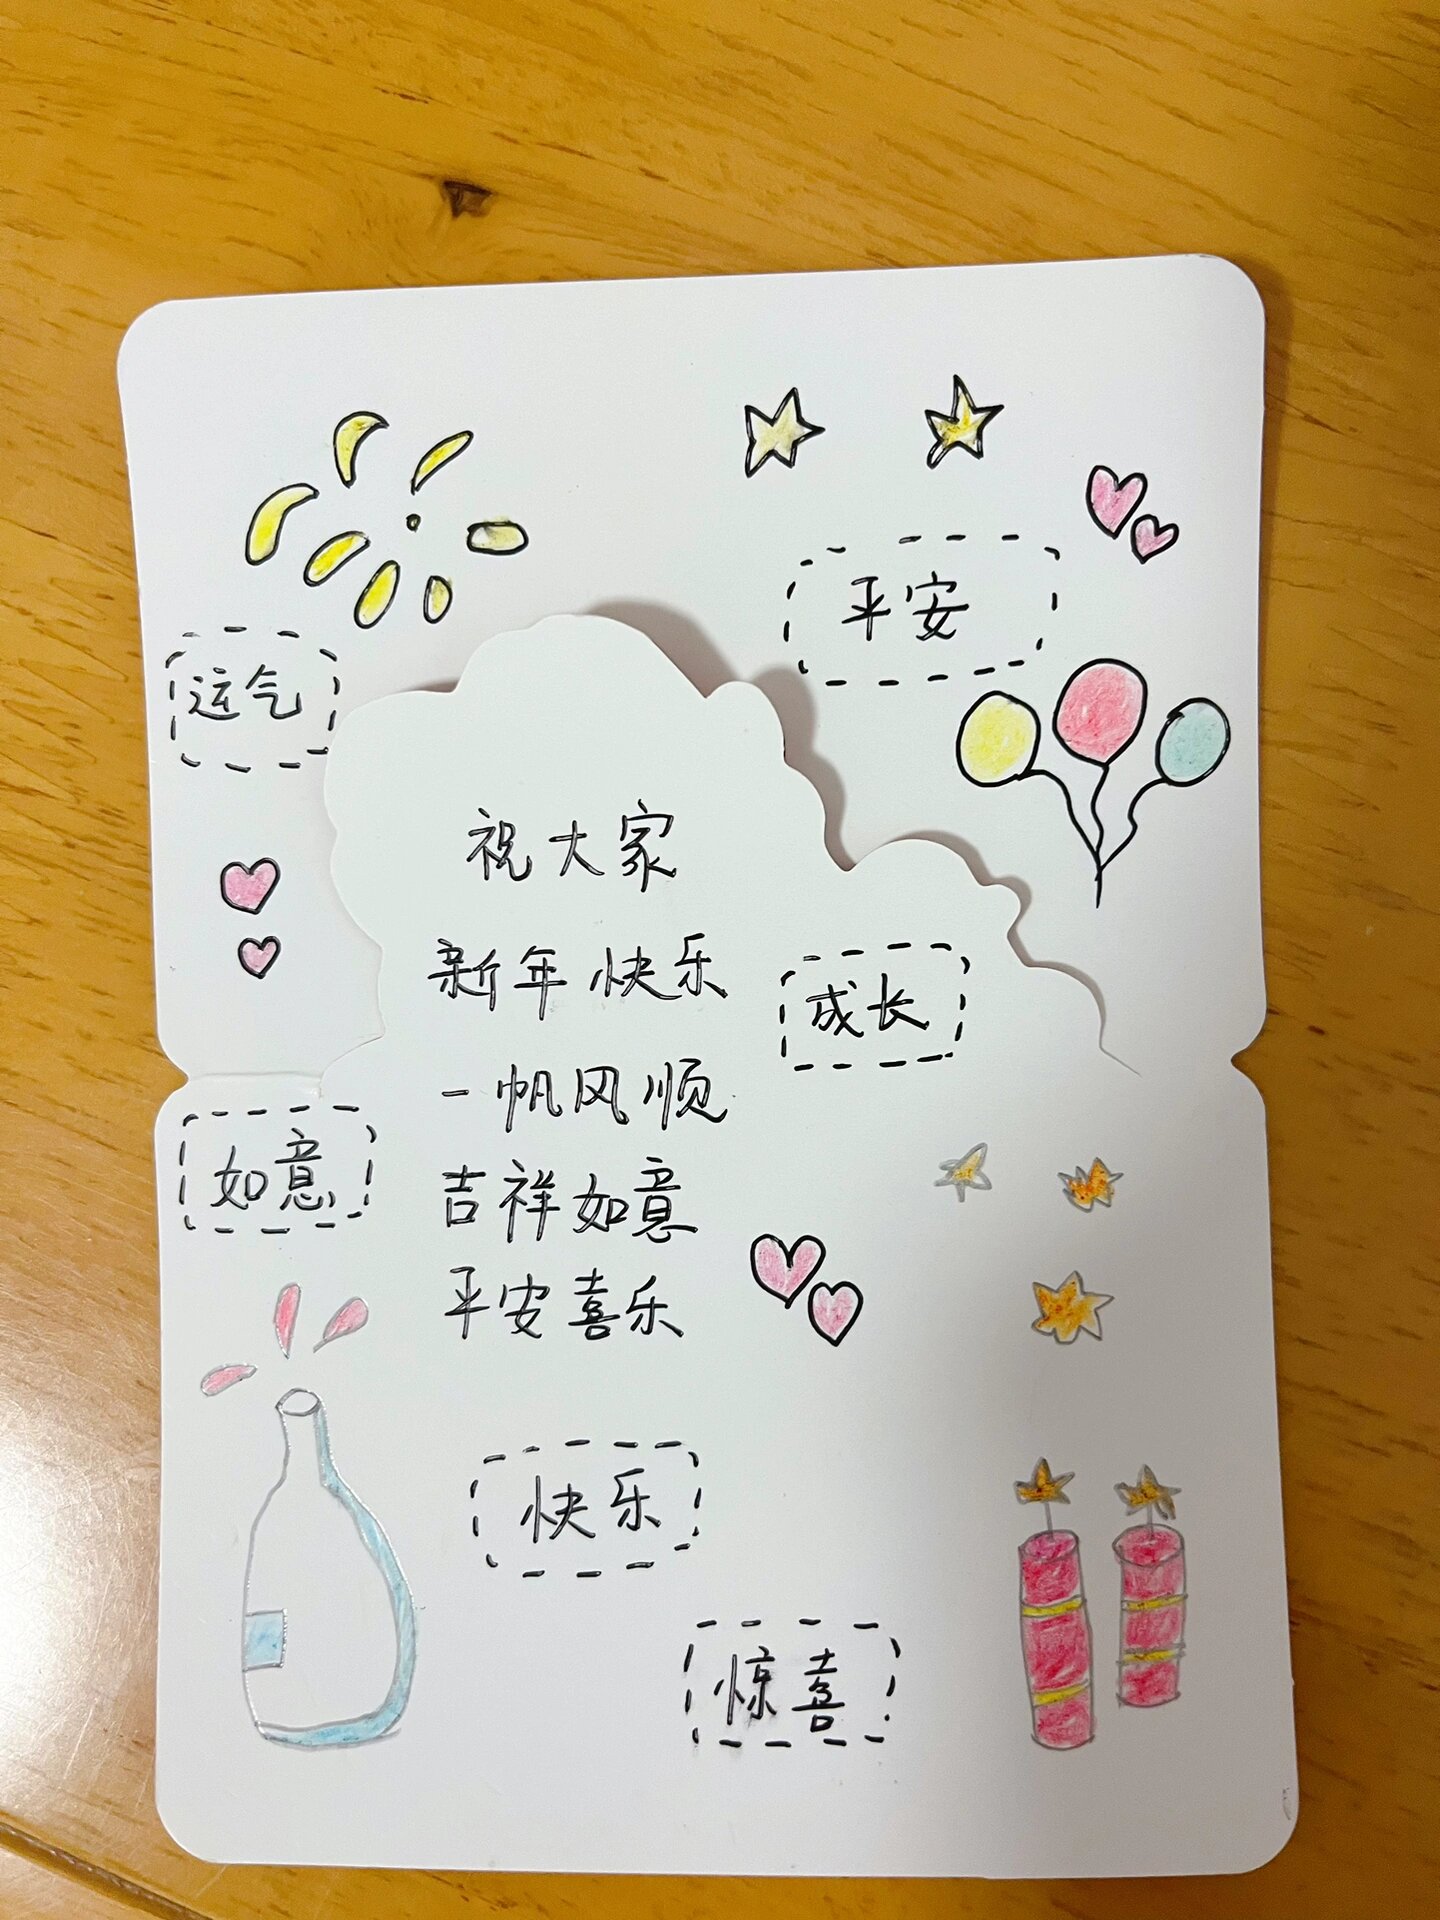 平安
运气
祝大家
新年快乐
成长
一帆风顺
如意
吉祥如意
平安喜乐
快乐
惊喜